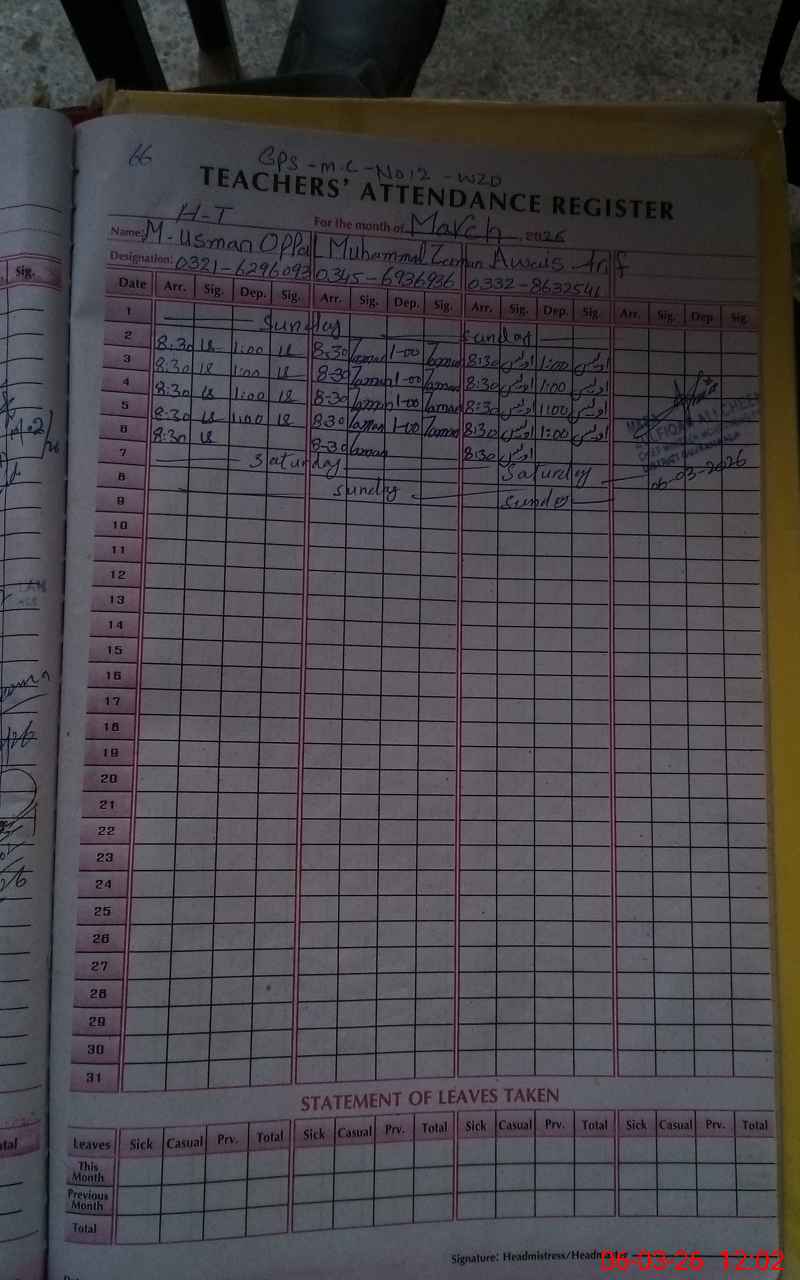 66
GPS-M.C-No12-WZD
TEACHERS' ATTENDANCE REGISTER
H-T For the month of March, 2026
Name: M. Usman Oppal Muhammad Zaman Awais Arif
Designation: 0321-6296093 0345-6936936 0332-8632541
Date Arr. Sig. Dep. Sig. Arr. Sig. Dep. Sig. Arr. Sig. Dep. Sig. Arr. Sig. Dep Sig
1 Sunday Sunday
2 8:30 1:00 8-30 Zaman 1-00 Zaman 8:30 اویس 1:00 اویس
3 8:30 1:00 8-30 Zaman 1-00 Zaman 8:30 اویس 1:00 اویس
4 8:30 1:00 8-30 Zaman 1-00 Zaman 8:30 اویس 1:00 اویس
5 8:30 1:00 8-30 Zaman 1-00 Zaman 8:30 اویس 1:00 اویس
6 8:30 8-30 Zaman 8:30 اویس
7 Saturday Saturday
06-03-2026
8 Sunday Sunday
9
10
11
12
13
14
15
16
17
18
19
20
21
22
23
24
25
26
27
28
29
30
31
STATEMENT OF LEAVES TAKEN
Leaves Sick Casual Prv. Total Sick Casual Prv. Total Sick Casual Prv. Total Sick Casual Prv. Total
This Month
Previous Month
Total
Signature: Headmistress/Headmaster
06-03-26 12:02